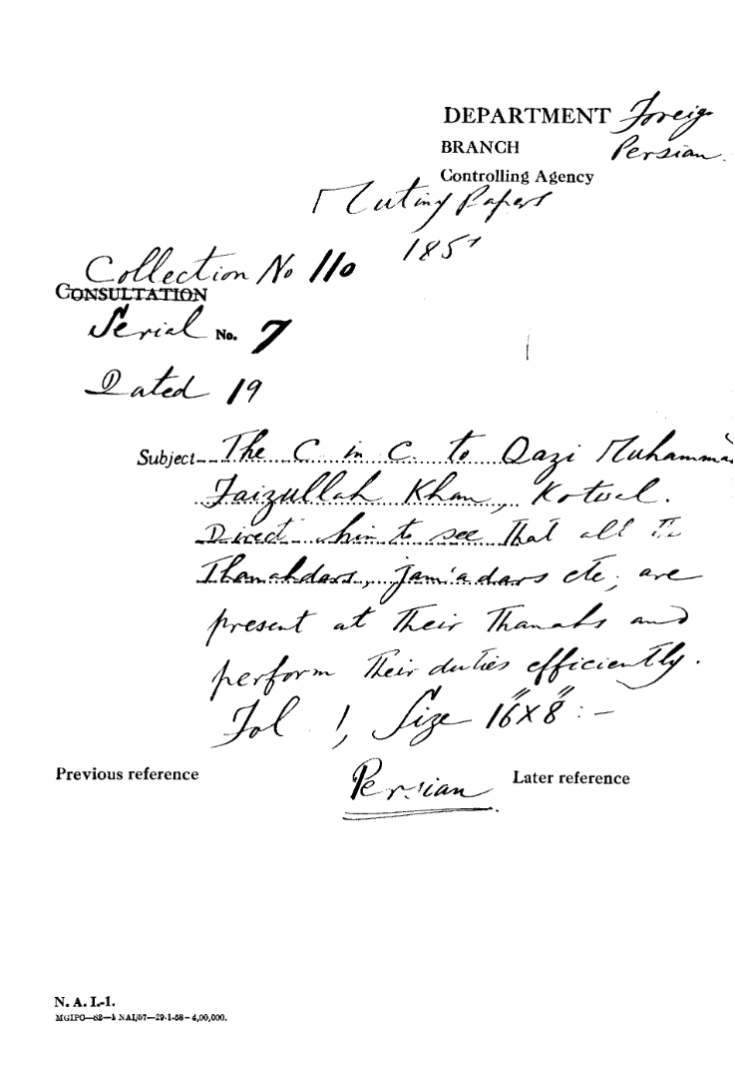 DEPARTMENT Foreign
BRANCH Persian.
Controlling Agency
Mutiny Papers
1857
Collection No 110
CONSULTATION
Serial No. 7
Dated 19
Subject The C in C. to Qazi Muhammad
Faizullah Khan, Kotwal.
Direct him to see that all the
Thanahdars, jam'adars etc; are
present at their Thanahs and
perform their duties efficiently.
Fol 1, Size 16"x8" :-
Previous reference
Persian
Later reference
N. A. I.-1.
MGIPC—S2—1 NAI/57—29-1-58—4,00,000.